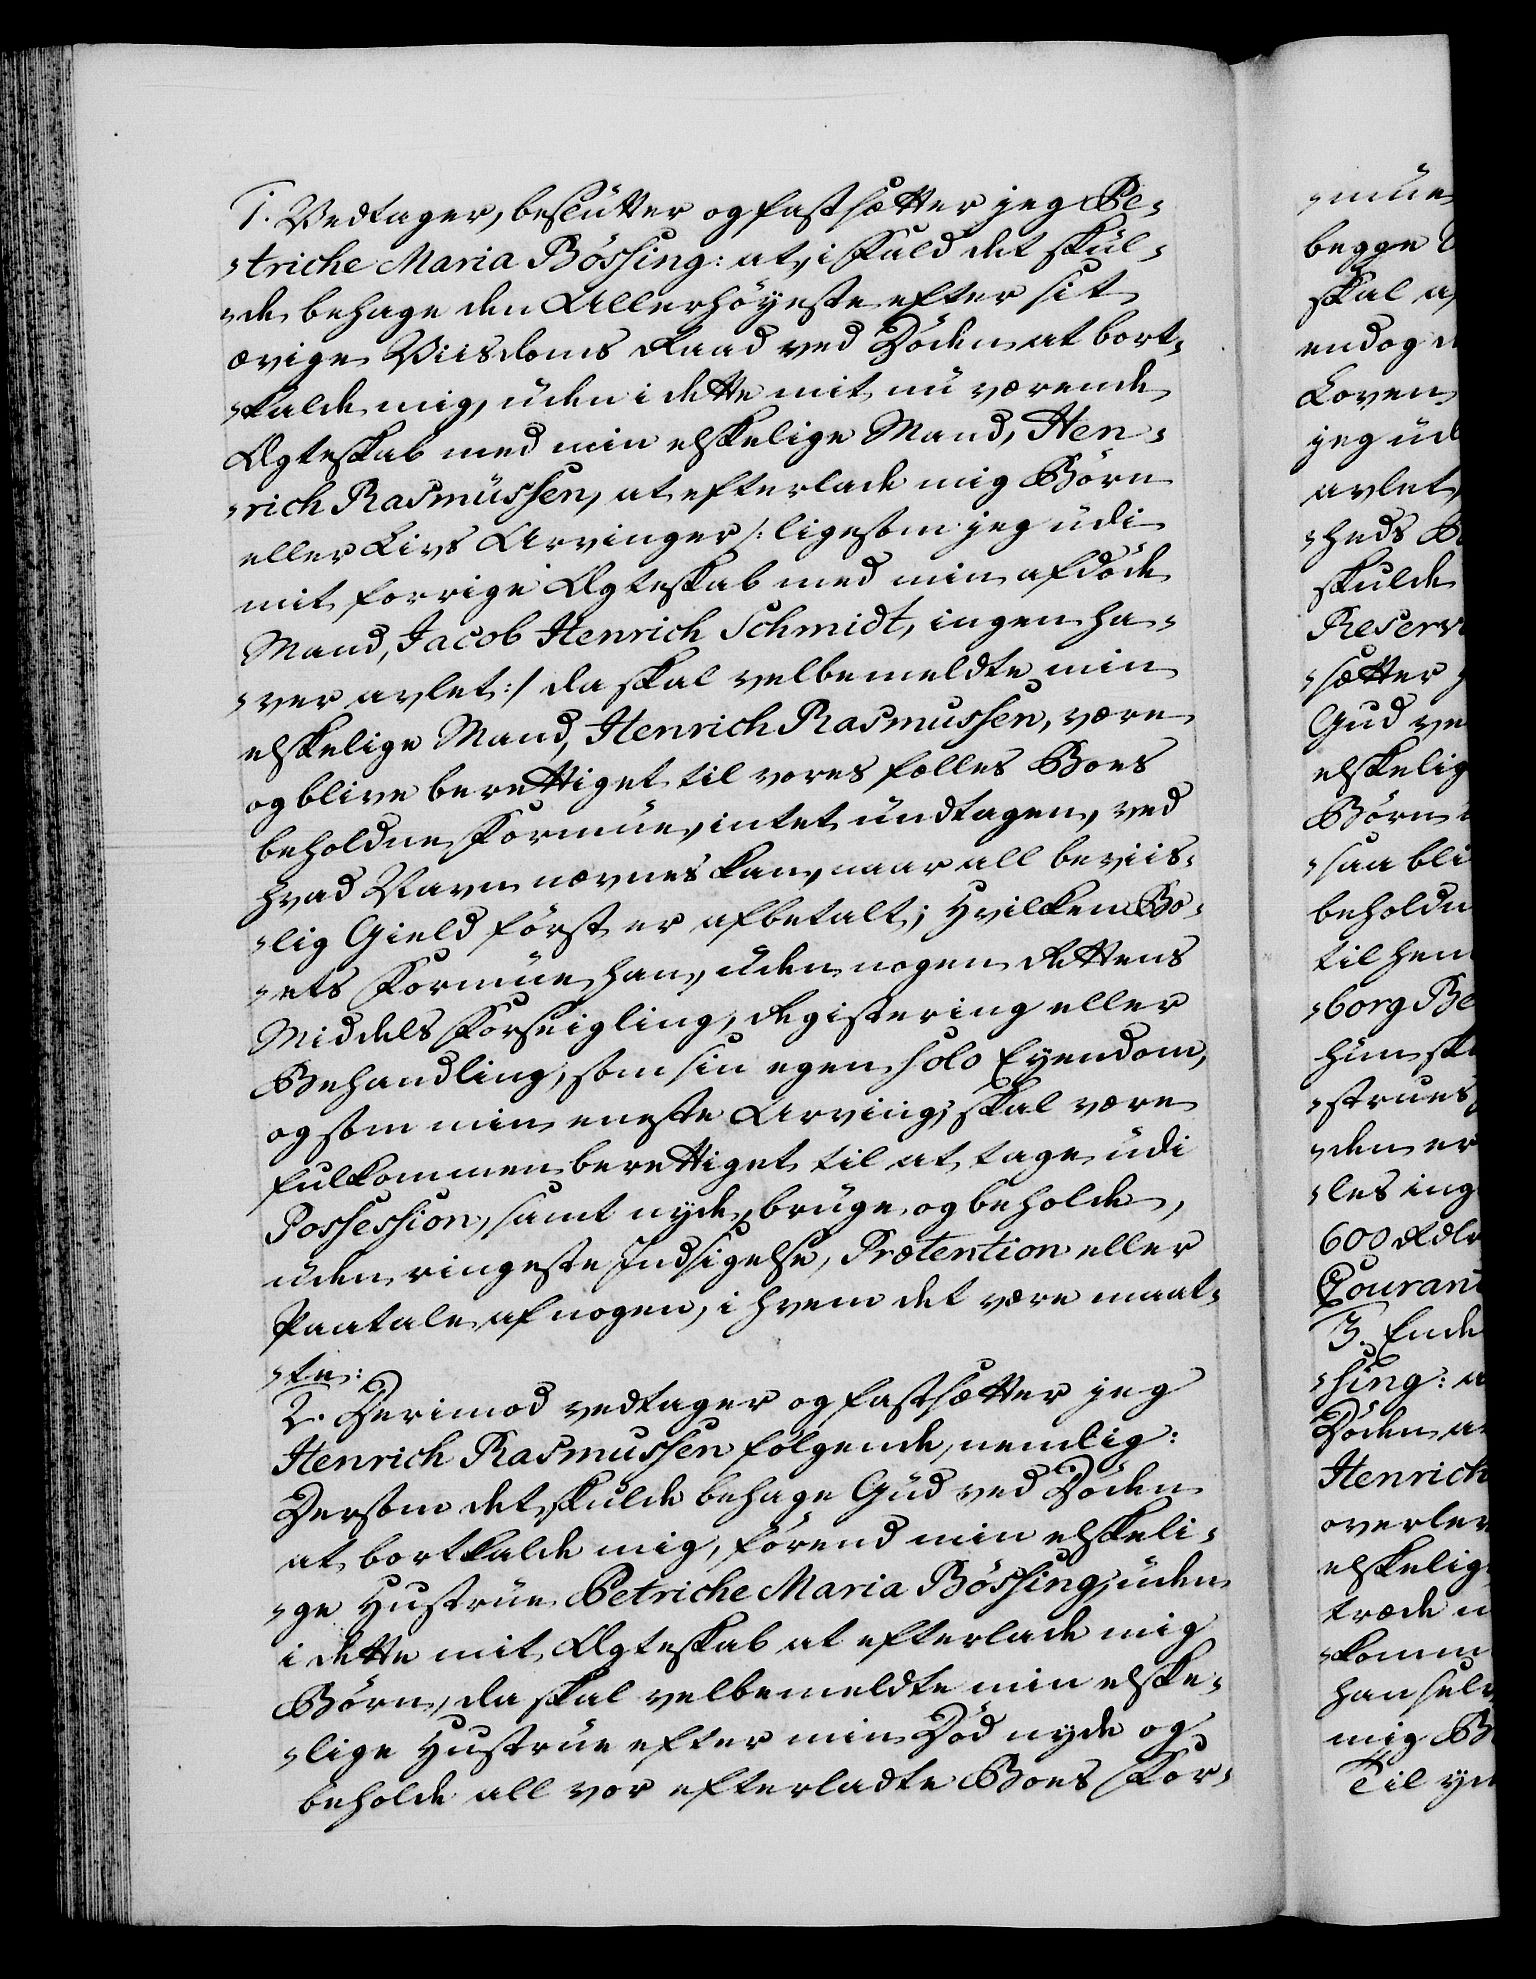 1. Vedtager, beslutter og fastsætter jeg Pe-
-triche Maria Bössing: at, i Fald det skul-
-de behage den Allerhöyeste efter sit
ævige Viisdoms Raad ved Döden at bort-
-kalde mig, uden i dette mit nu værende
Ægteskab med min elskelige Mand, Hen-
-rich Rasmussen, at efterlade mig Börn
eller Livs Arvinger /: ligesom jeg udi
mit forrige Ægteskab med min afdöde
Mand, Jacob Henrich Schmidt, ingen ha-
-ver avlet :/ da skal velbemeldte min
elskelige Mand, Henrich Rasmussen, være
og blive berettiget til vores fælles Boes
beholdne Formue, intet undtagen, ved
hvad Navn nævnes kan, naar all beviis-
-lig Gield först er afbetalt; Hvilken Bo-
-ets Formue han, uden nogen Rettens
Middels Forseigling, Registering eller
Behandling, som sin egen solo Eyendom,
og som min eneste Arving, skal være
fulkommen berettiget til at tage udi
Possession, samt nyde, bruge og beholde,
uden ringeste Indsigelse, Prætention eller
Paatale af nogen, i hvem det være maat-
-te:
2. Derimod vedtager og fastsætter jeg
Henrich Rasmussen fölgende, nemlig:
Dersom det skulde behage Gud ved Döden
at bortkalde mig, förend min elskeli-
-ge Hustrue Petriche Maria Bössing, uden
i dette mit Ægteskab at efterlade mig
Börn, da skal velbemeldte min elske-
-lige Hustrue efter min Död nyde og
beholde all vor efterladte Boes For-
-mue
begge
skal
endog
Loven
jeg
avlet
-heds
skulde
-sætter
Gud
Börn
-saa
600 Rdlr
3. Ende
-sing:
Döden
Henrich
træde
mig
Til